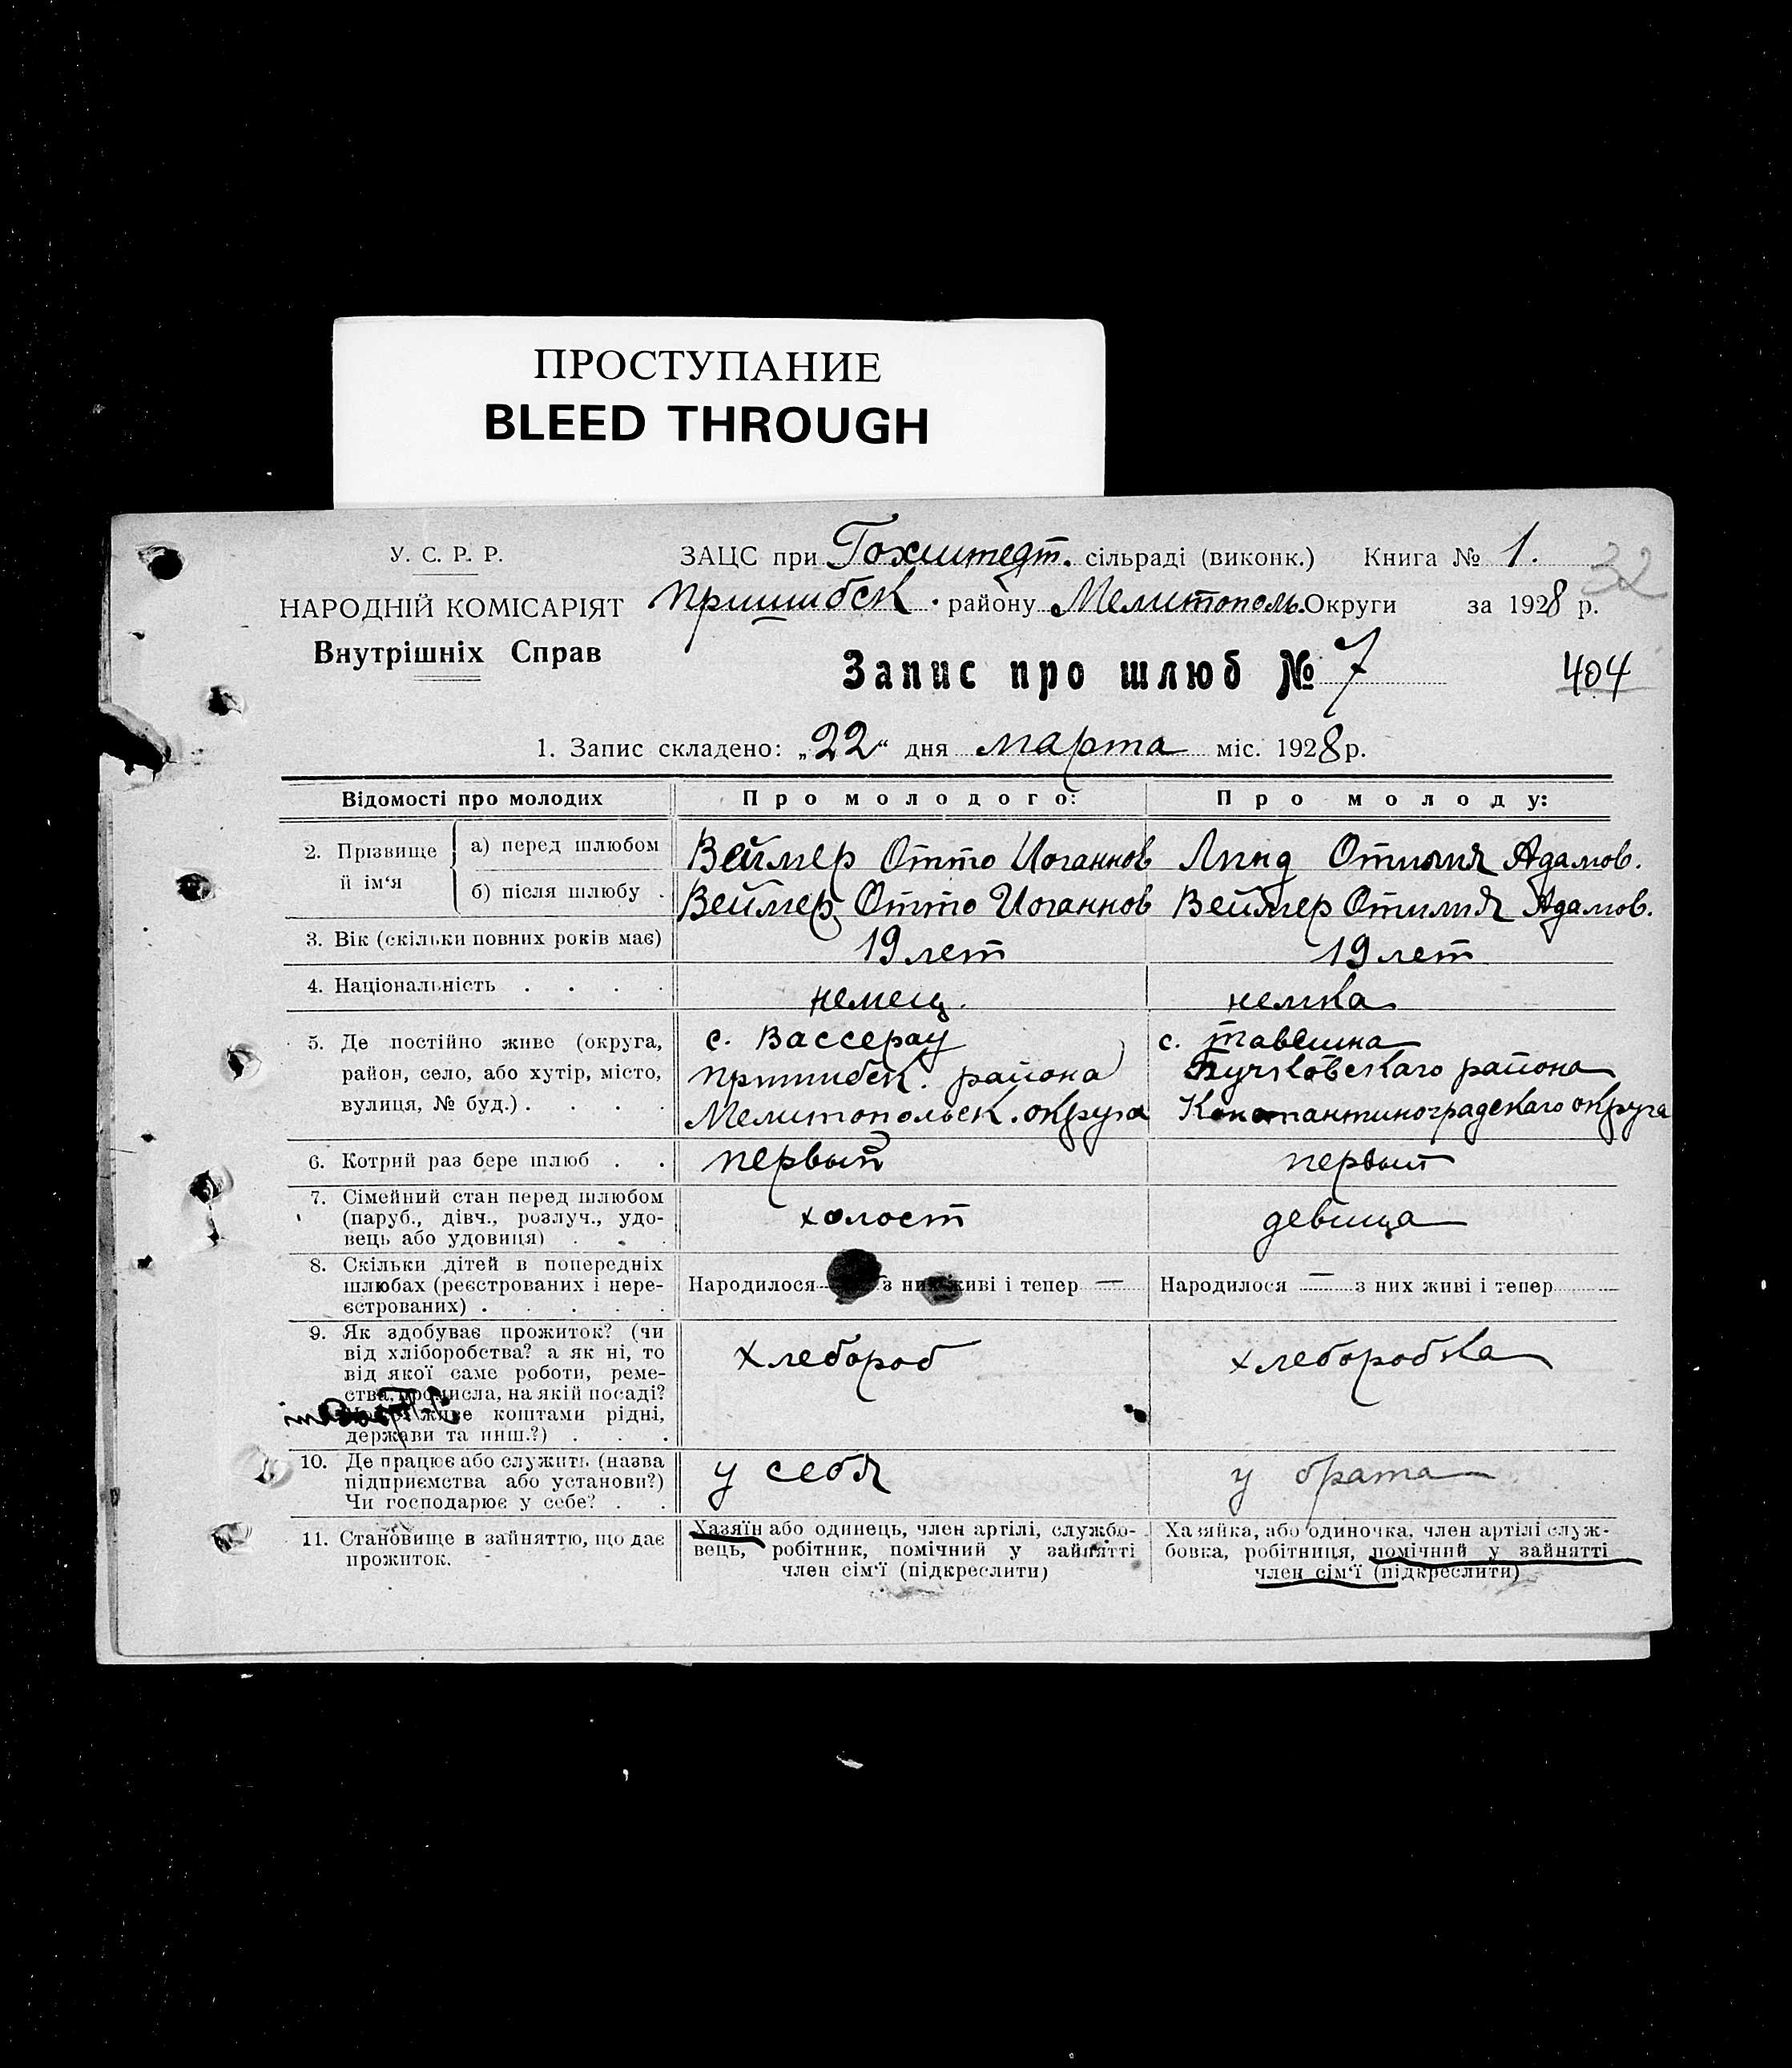 ПРОСТУПАНИЕ
BLEED THROUGH
У. С. Р. Р.
ЗАЦС при Гохштедт. сільраді (виконк.) Книга № 1.
32
НАРОДНІЙ КОМІСАРІЯТ
Пришибск. району Мелитополь. Округи за 1928 р.
Внутрішніх Справ
Запис про шлюб № 7
404
1. Запис складено: „22“ дня марта міс. 1928 р.
Відомості про молодих
Про молодого:
Про молоду:
2. Прізвище й ім‘я
а) перед шлюбом
Веймер Отто Иоганнов
Линд Отилия Адамов.
б) після шлюбу .
Веймер Отто Иоганнов
Веймер Отилия Адамов.
3. Вік (скільки повних років має)
19 лет
19 лет
4. Національність . . . .
немец.
немка
5. Де постійно живе (округа,
район, село, або хутір, місто,
вулиця, № буд.) . . . .
с. Вассерау
Пришибск. района
Мелитопольск. округа
с.
района
Константиноградскаго округа
6. Котрий раз бере шлюб . .
первый
первый
7. Сімейний стан перед шлюбом
(паруб., дівч., розлуч., удо-
вець або удовиця) . . .
холост
девица
8. Скільки дітей в попередніх
шлюбах (реєстрованих і нере-
єстрованих) . . . . .
Народилося з них живі і тепер —
Народилося — з них живі і тепер
9. Як здобуває прожиток? (чи
від хліборобства? а як ні, то
від якої саме роботи, реме-
ства, промисла, на якій посаді?
живе коштами рідні,
держави та инш.?) . . .
хлебороб
хлеборобка
10. Де працює або служить (назва
підприємства або установи?)
Чи господарює у себе? . .
у себя
у брата
11. Становище в зайняттю, що дає
прожиток.
Хазяїн або одинець, член артілі, службо-
вець, робітник, помічний у зайнятті
член сім‘ї (підкреслити)
Хазяйка, або одиночка, член артілі служ-
бовка, робітниця, помічний у зайнятті
член сім‘ї (підкреслити)